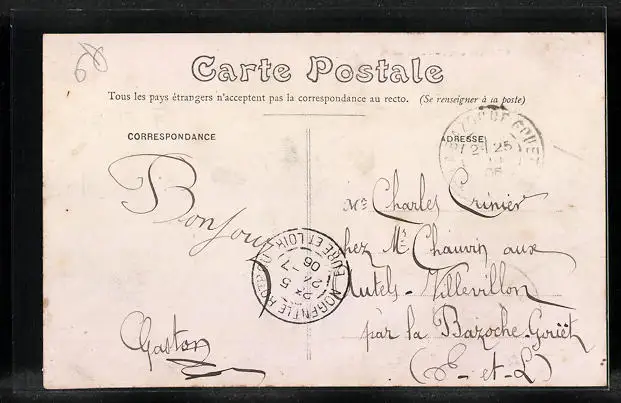 Carte Postale
Tous les pays étrangers n'acceptent pas la correspondance au recto. (Se renseigner à la poste)
CORRESPONDANCE
Bonjour
Gaston
ADRESSE
Mr Charles Crinier
chez Mr Chauvin aux
Autels-Villevillon
par la Bazoche-Gouët
(E-et-L)
NOGENT-LE-ROTROU
EURE ET LOIR
25